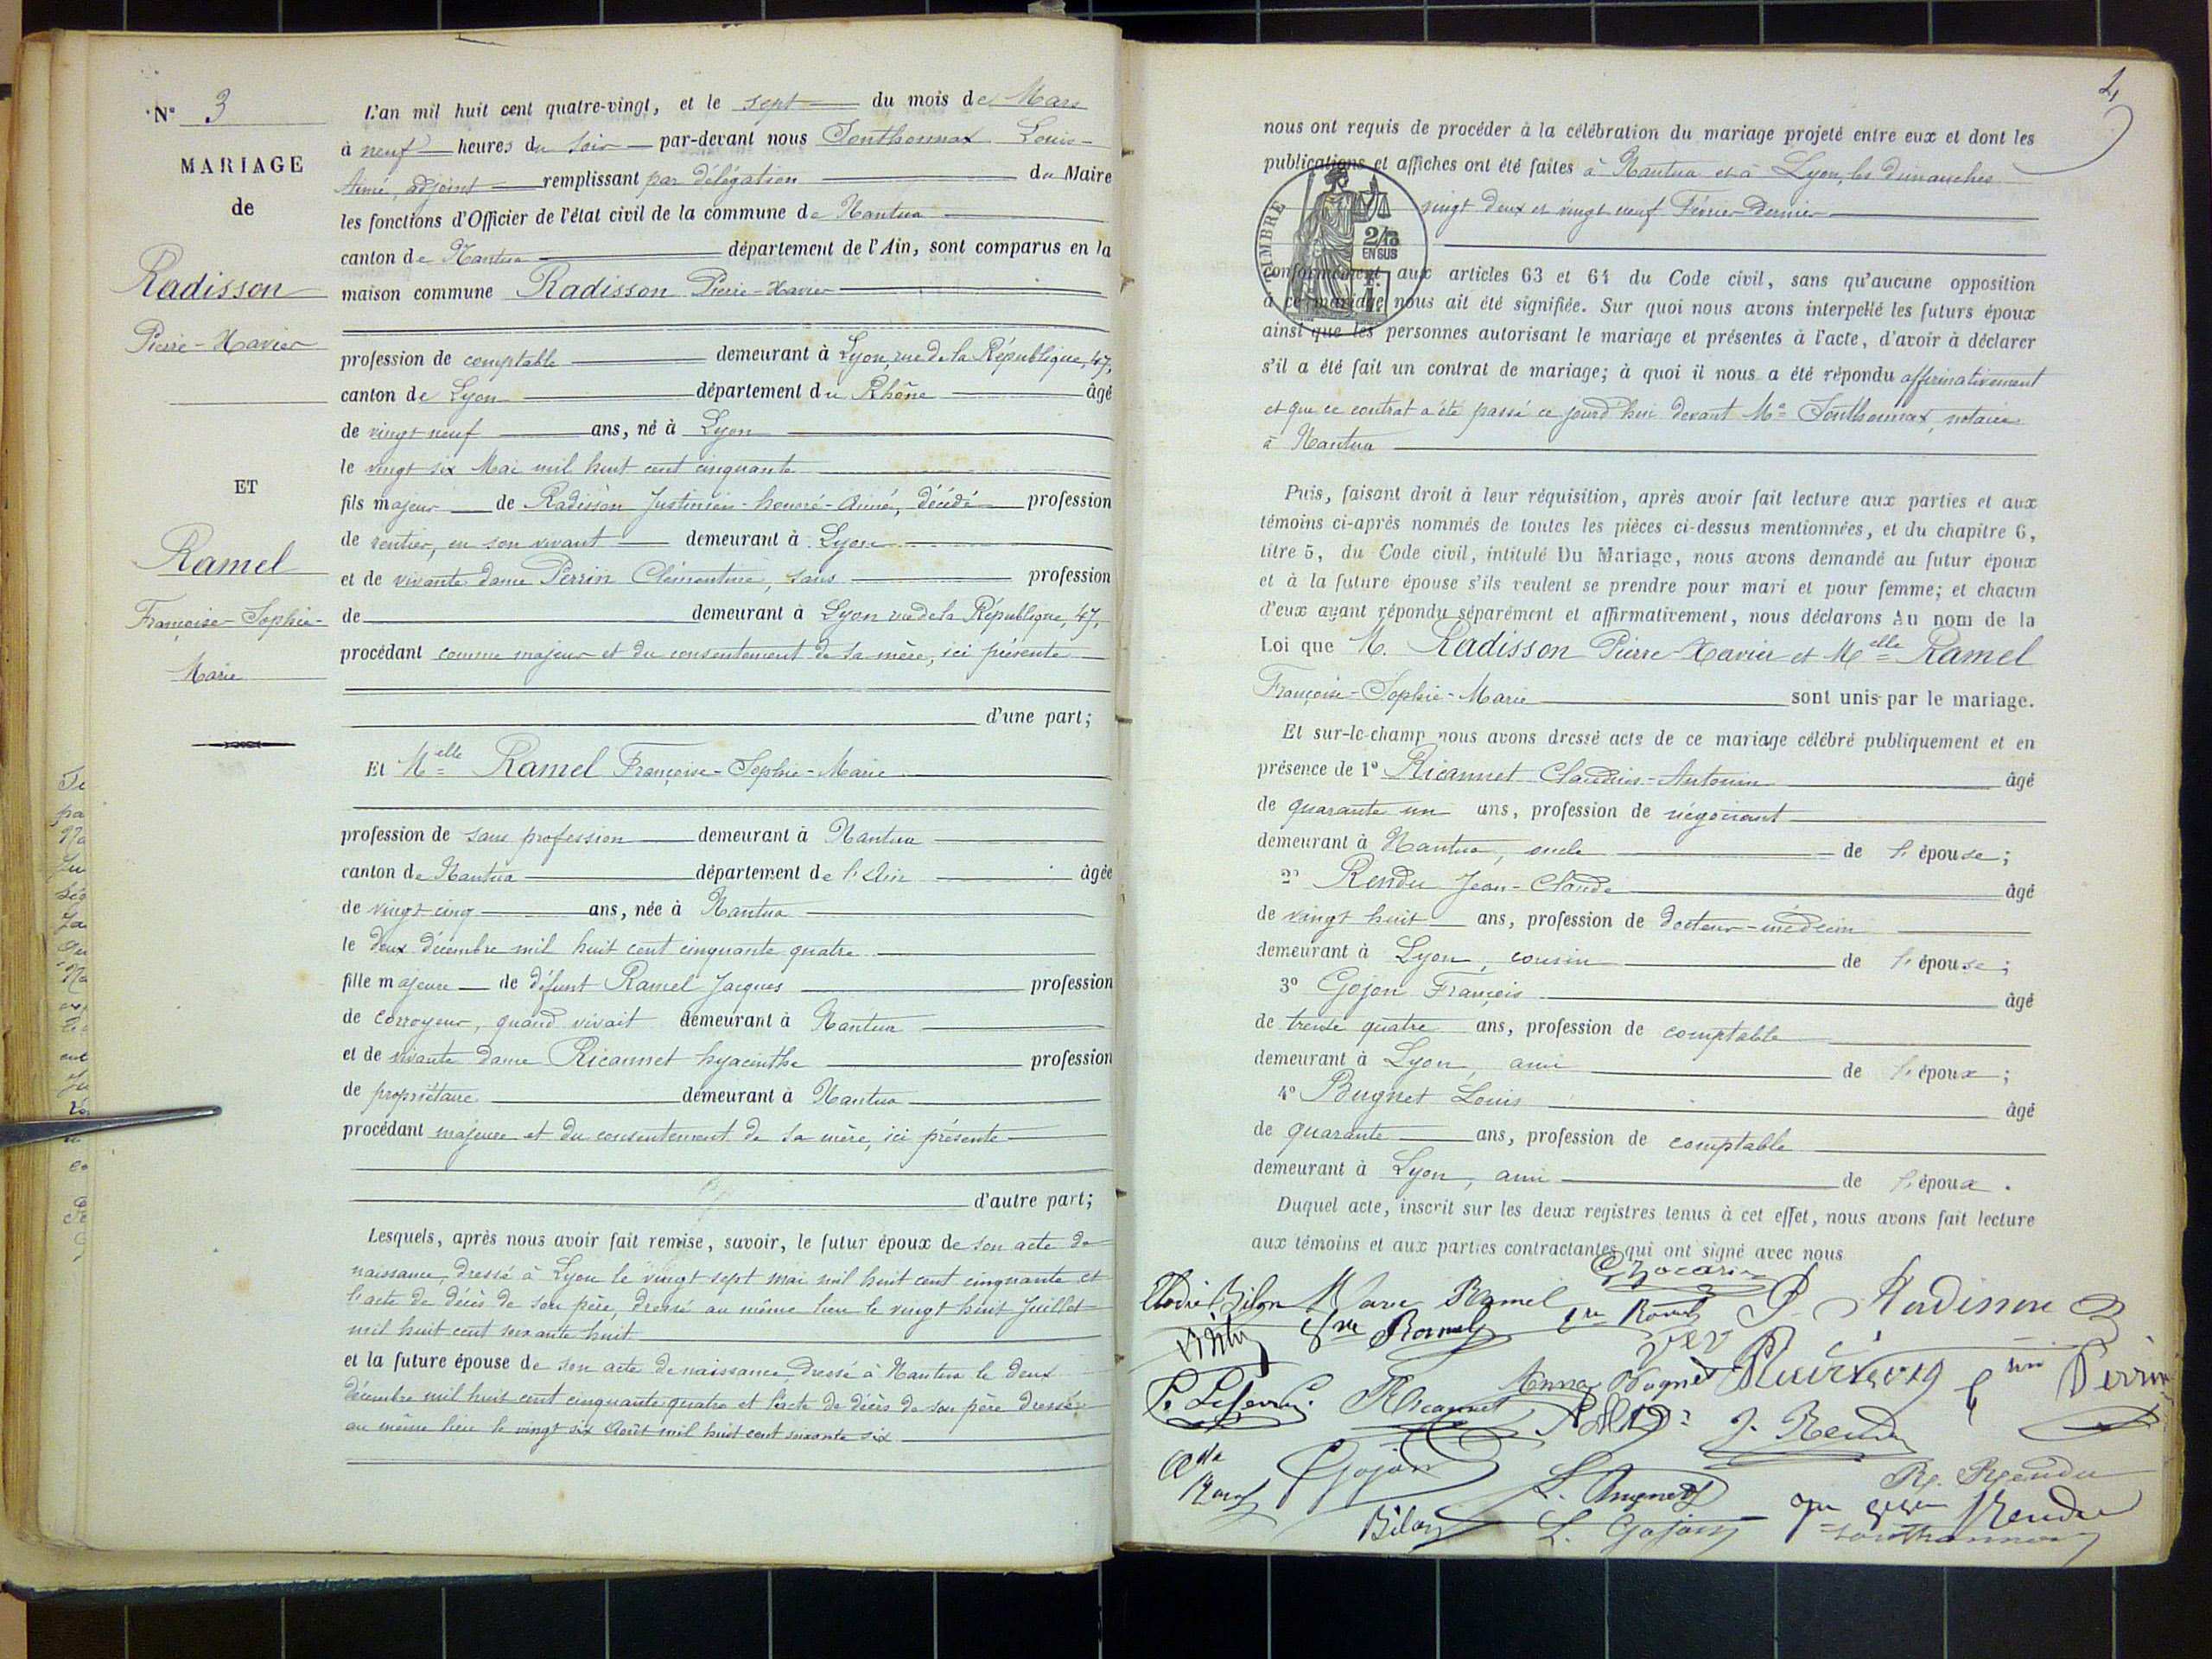 N° 3
MARIAGE
de
Radisson
Pierre-Xavier
ET
Ramel
Françoise-Sophie-
Marie
L'an mil huit cent quatre-vingt, et le sept du mois de Mars
à neuf heures du soir par-devant nous Sonthonnax Louis-
Aimé, adjoint remplissant par délégation du Maire
les fonctions d'Officier de l'état civil de la commune de Nantua
canton de Nantua département de l'Ain, sont comparus en la
maison commune Radisson Pierre-Xavier
profession de comptable demeurant à Lyon, rue de la République, 47,
canton de Lyon département du Rhône âgé
de vingt neuf ans, né à Lyon
le vingt six Mai mil huit cent cinquante
fils majeur de Radisson Justinien-honoré-Aimé, décédé profession
de rentier, en son vivant demeurant à Lyon
et de vivante dame Perrin Clémentine, sans profession
de demeurant à Lyon rue de la République, 47,
procédant comme majeur et du consentement de sa mère, ici présente
d'une part;
Et Melle Ramel Françoise-Sophie-Marie
profession de sans profession demeurant à Nantua
canton de Nantua département de l'Ain âgée
de vingt cinq ans, née à Nantua
le deux décembre mil huit cent cinquante quatre
fille majeure de défunt Ramel Jacques profession
de corroyeur, quand vivait demeurant à Nantua
et de vivante dame Ricannet hyacinthe profession
de propriétaire demeurant à Nantua
procédant majeure et du consentement de sa mère, ici présente
d'autre part;
Lesquels, après nous avoir fait remise, savoir, le futur époux de son acte de
naissance, dressé à Lyon le vingt sept mai mil huit cent cinquante et
l'acte de décès de son père, dressé au même lieu le vingt huit Juillet
mil huit cent soixante huit
et la future épouse de son acte de naissance dressé à Nantua le deux
décembre mil huit cent cinquante quatre et l'acte de décès de son père dressé
au même lieu le vingt six Août mil huit cent soixante six
nous ont requis de procéder à la célébration du mariage projeté entre eux et dont les
publications et affiches ont été faites à Nantua et à Lyon, les dimanches
vingt deux et vingt neuf Février dernier
TIMBRE
2/10
EN SUS
conformément aux articles 63 et 64 du Code civil, sans qu'aucune opposition
à ce mariage nous ait été signifiée. Sur quoi nous avons interpellé les futurs époux
ainsi que les personnes autorisant le mariage et présentes à l'acte, d'avoir à déclarer
s'il a été fait un contrat de mariage; à quoi il nous a été répondu affirmativement
et que ce contrat a été passé ce jourd'hui devant Me Sonthonnax, notaire
à Nantua
Puis, faisant droit à leur réquisition, après avoir fait lecture aux parties et aux
témoins ci-après nommés de toutes les pièces ci-dessus mentionnées, et du chapitre 6,
titre 5, du Code civil, intitulé Du Mariage, nous avons demandé au futur époux
et à la future épouse s'ils veulent se prendre pour mari et pour femme; et chacun
d'eux ayant répondu séparément et affirmativement, nous déclarons Au nom de la
Loi que M. Radisson Pierre-Xavier et Melle Ramel
Françoise-Sophie-Marie sont unis par le mariage.
Et sur-le-champ nous avons dressé acte de ce mariage célébré publiquement et en
présence de 1° Ricannet Claudius-Antonin âgé
de quarante un ans, profession de négociant
demeurant à Nantua, oncle de l'épouse;
2° Rendu Jean-Claude âgé
de vingt huit ans, profession de docteur-médecin
demeurant à Lyon, cousin de l'épouse;
3° Gojon François âgé
de trente quatre ans, profession de comptable
demeurant à Lyon, ami de l'époux;
4° Bugnet Louis âgé
de quarante ans, profession de comptable
demeurant à Lyon, ami de l'époux.
Duquel acte, inscrit sur les deux registres tenus à cet effet, nous avons fait lecture
aux témoins et aux parties contractantes qui ont signé avec nous
Elodie Bilon Marie Ramel P. Radisson
Perrin
Anna Bugnet
Ricannet J. Rendu
Gojon L. Bugnet Rendu
Bilon L. Gojon Rendu
Sonthonnax